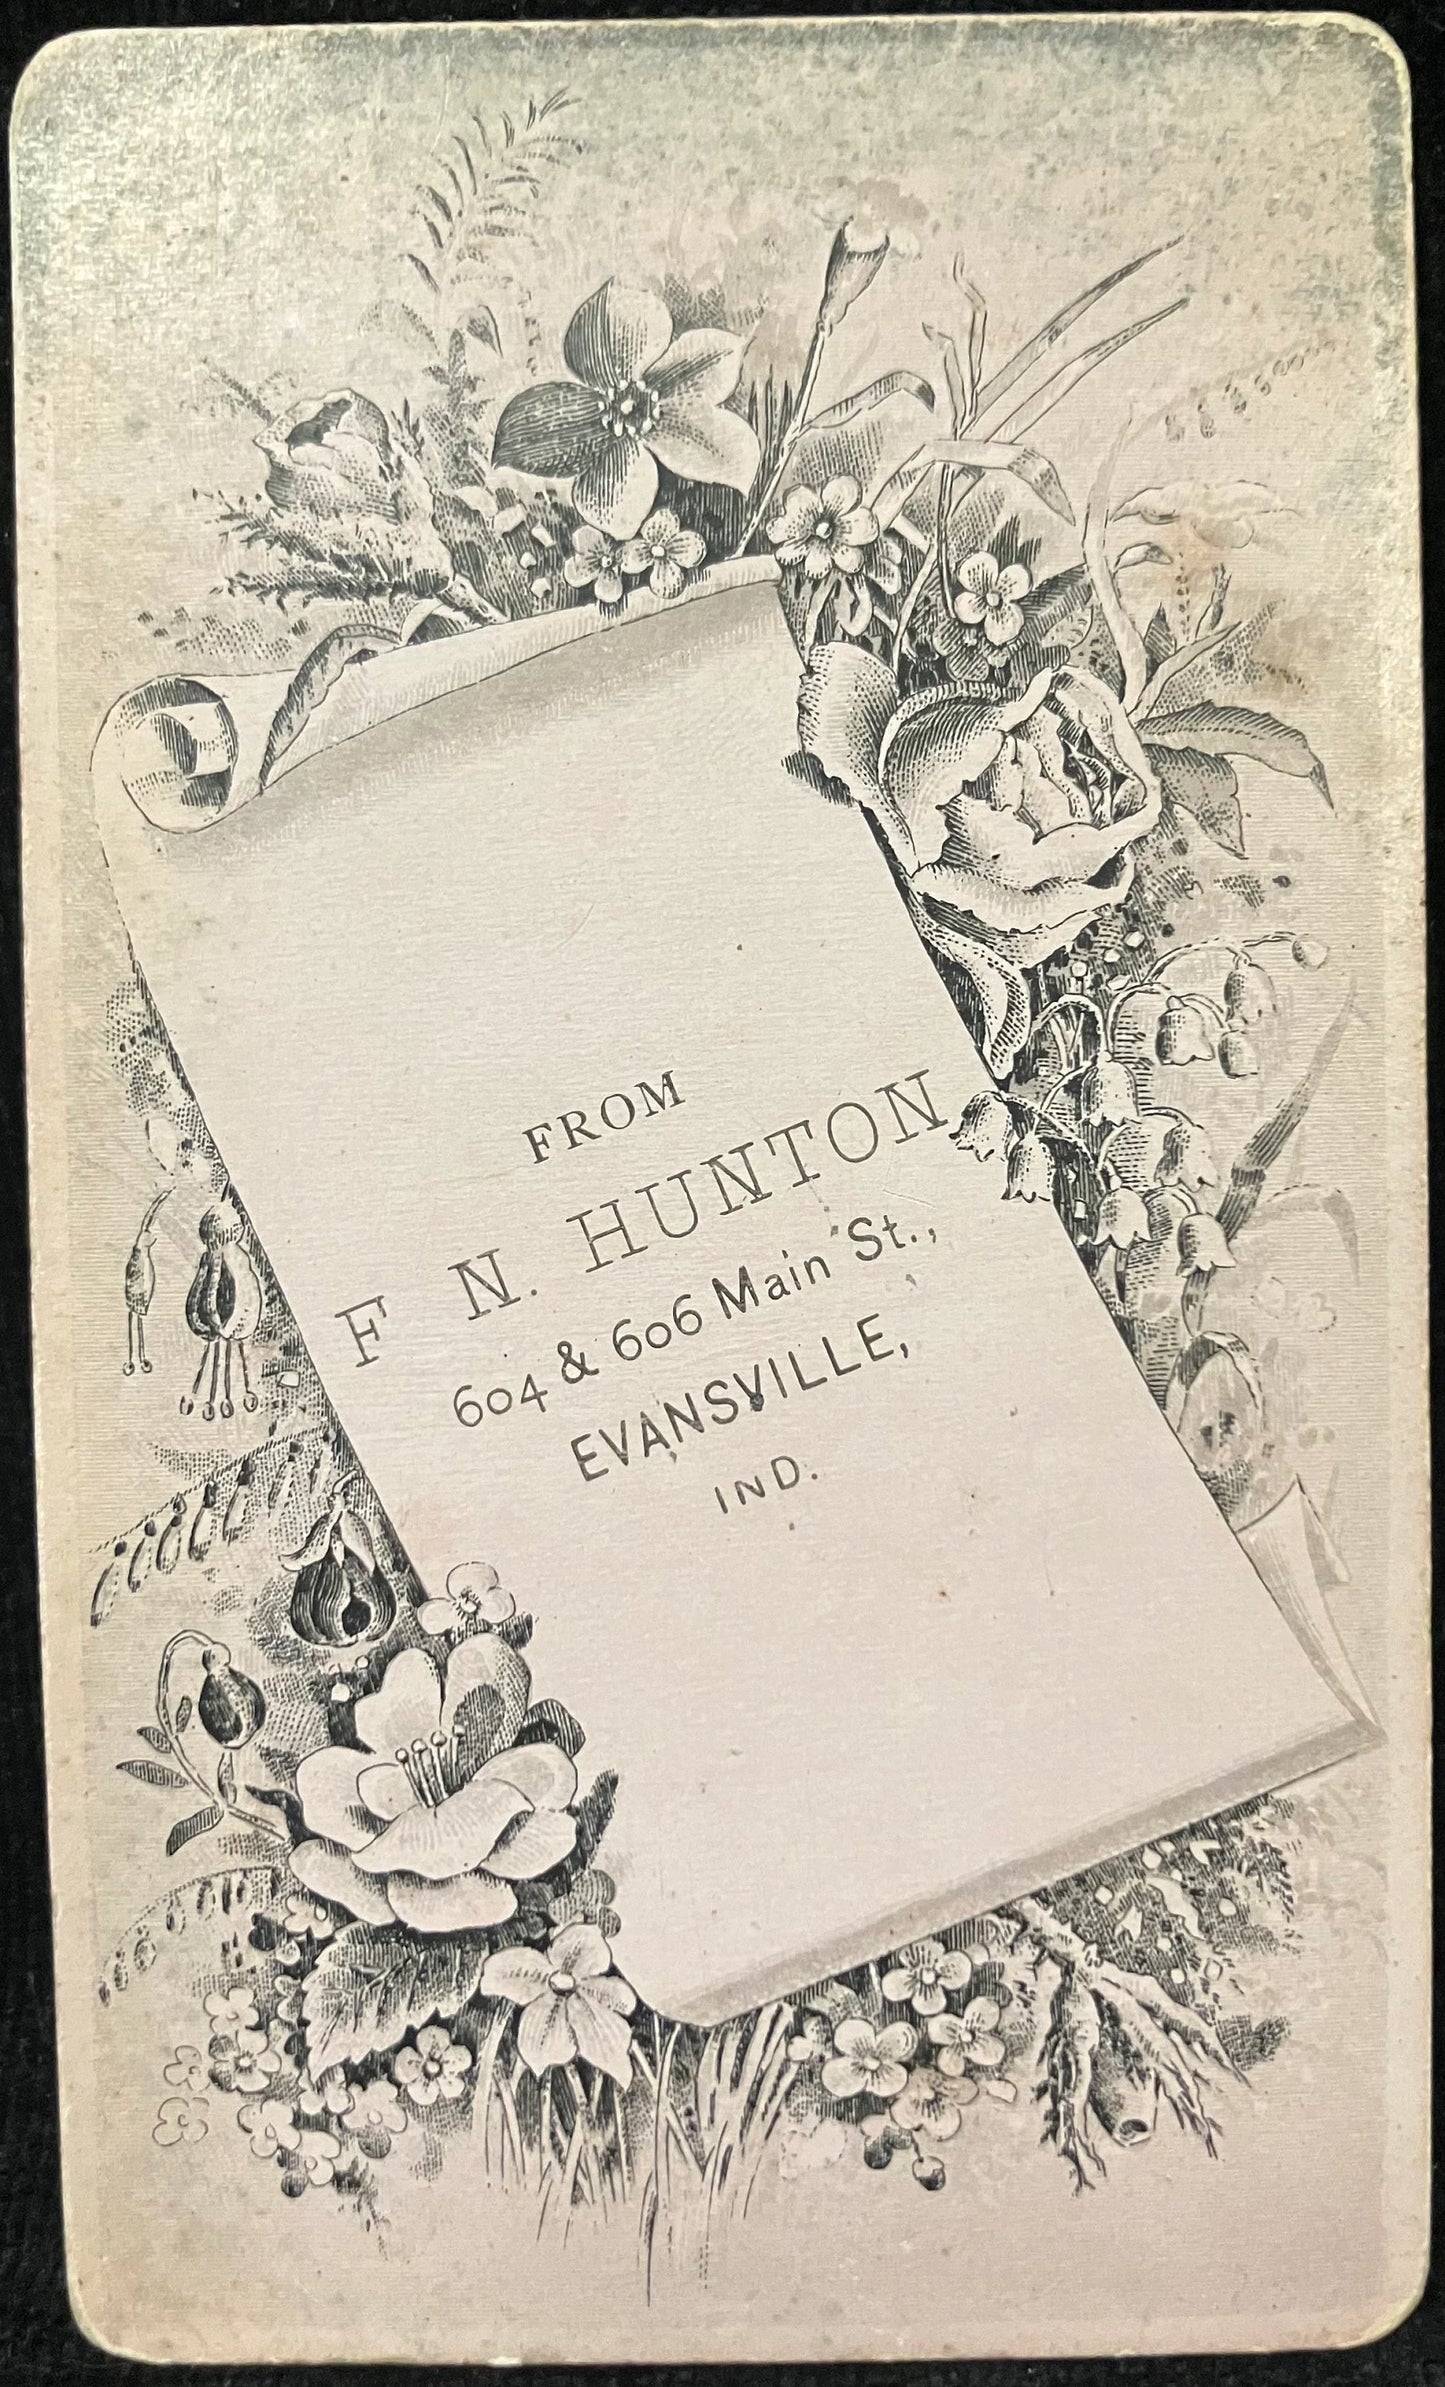 FROM
F N. HUNTON,
604 & 606 Main St.,
EVANSVILLE,
IND.